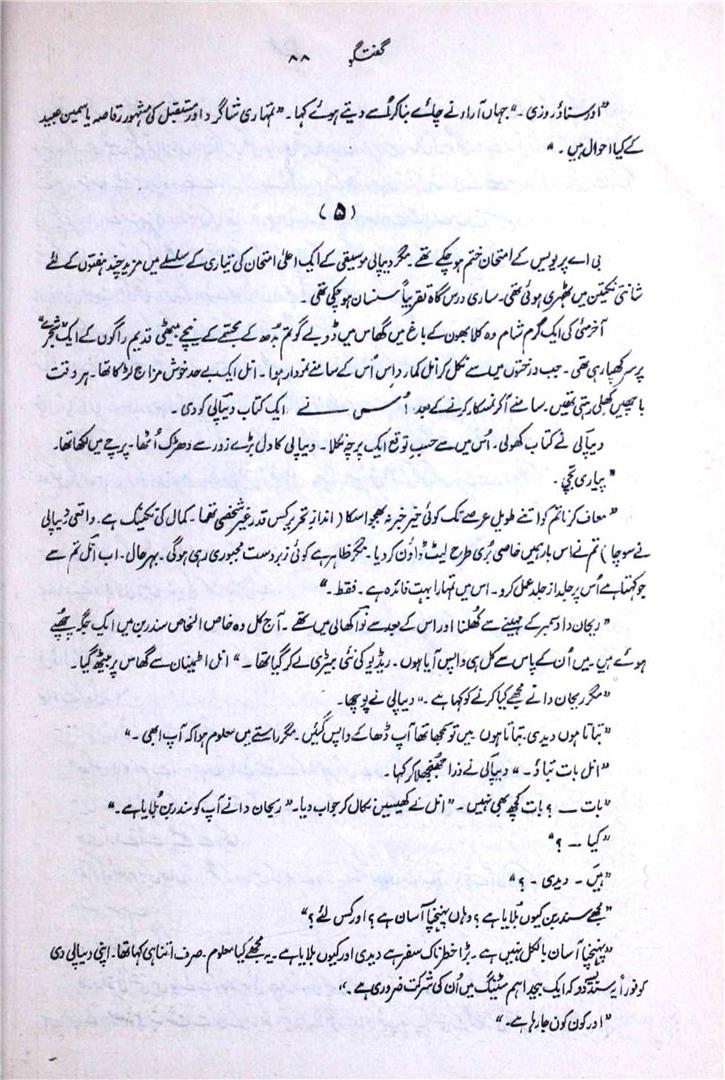 گفتگو ۸۸
”اور سناؤ روزی ۔“ جہاں آراء نے چائے بنا کر اُسے دیتے ہوئے کہا۔ ”تمہاری شاگرد اور مستقبل کی مشہور رقاصہ یاسمین مجید
کے کیا احوال ہیں ۔ “
(۵)
بی اے پریویس کے امتحان ختم ہو چکے تھے ۔ مگر دیپالی موسیقی کے ایک اعلیٰ امتحان کی تیاری کے سلسلے میں مزید چند ہفتوں کے لئے
شانتی نکیتن میں ٹھہری ہوئی تھی۔ ساری درس گاہ تقریباً سنسان ہو چکی تھی
آخر مئی کی ایک گرم شام وہ کلا بھون کے باغ میں گھاس میں ڈوبے گوتم بدھ کے مجسمے کے نیچے بیٹھی قدیم راگوں کے ایک ”شجرے“
پر سر کھپا رہی تھی ۔ جب درختوں میں سے نکل کر انل کمار داس اُس کے سامنے نمودار ہوا ۔ انل ایک بے حد خوش مزاج لڑکا تھا ۔ ہر وقت
باچھیں کھِلی رہتی تھیں ۔ سامنے آ کر نمسکار کرنے کے بعد اُس نے ایک کتاب دیپالی کو دی ۔
دیپالی نے کتاب کھولی ۔ اُس میں سے حسبِ توقع ایک پرچہ نکلا ۔ دیپالی کا دل بڑے زور سے دھڑک اُٹھا ۔ پرچے میں لکھا تھا۔
” پیاری ۔
”معاف کرنا تم کو اتنے طویل عرصے تک کوئی خیر خبر نہ بھجوا سکا ( اندازِ تحریر کس قدر غیر شخصی تھا ۔ کمال کی تکنیک ہے ۔ واقعی دیپالی
نے سوچا ) تم نے اس بار ہمیں خاصی بُری طرح لیٹ ڈاؤن کر دیا ۔ مگر ظاہر ہے کوئی زبردست مجبوری رہی ہوگی ۔ بہر حال ۔ اب انل تم سے
جو کہتا ہے اُس پر جلد از جلد عمل کرو ۔ اس میں تمہارا بہت فائدہ ہے ۔ فقط ۔ “
”ریحان دا دسمبر کے مہینے سے کھُلنا اور اس کے بعد سے نواکھالی میں تھے ۔ آج کل وہ خاص الخاص سندربن میں ایک جگہ چھپے
ہوئے ہیں ۔ میں اُن کے پاس سے کل ہی واپس آیا ہوں ۔ ریڈیو کی نئی بیٹری لے کر گیا تھا ۔ “ انل اطمینان سے گھاس پر بیٹھ گیا ۔
”مگر ریحان دا نے مجھے کیا کرنے کو کہا ہے ۔ “ دیپالی نے پوچھا ۔
”بتاتا ہوں دیدی ۔ بتاتا ہوں ۔ میں تو سمجھا تھا آپ ڈھاکے واپس گئیں ۔ مگر راستے میں معلوم ہوا کہ آپ ابھی ۔ “
”انل بات بتاؤ ۔ “ دیپالی نے ذرا جھنجھلا کر کہا ۔
”بات ۔۔ ؟ بات کچھ بھی نہیں ۔ “ انل نے کھیسیں نکال کر جواب دیا ۔ ”ریحان دا نے آپ کو سندربن بُلایا ہے ۔ “
”کیا ۔۔ ؟ “
”ہیں ۔ دیدی ۔ ؟ “
”مجھے سندربن کیوں بُلایا ہے ؟ وہاں پہنچنا آسان ہے ؟ اور کس لئے ؟ “
”پہنچنا آسان بالکل نہیں ہے ۔ بڑا خطرناک سفر ہے دیدی اور کیوں بلایا ہے ۔ یہ مجھے کیا معلوم ۔ صرف اتنا ہی کہا تھا ۔ اپنی دیپالی دی
کو فوراً سندیسہ دو کہ ایک بیحد اہم میٹنگ میں اُن کی شرکت ضروری ہے ۔ “
”اور کون کون جا رہا ہے ۔ “